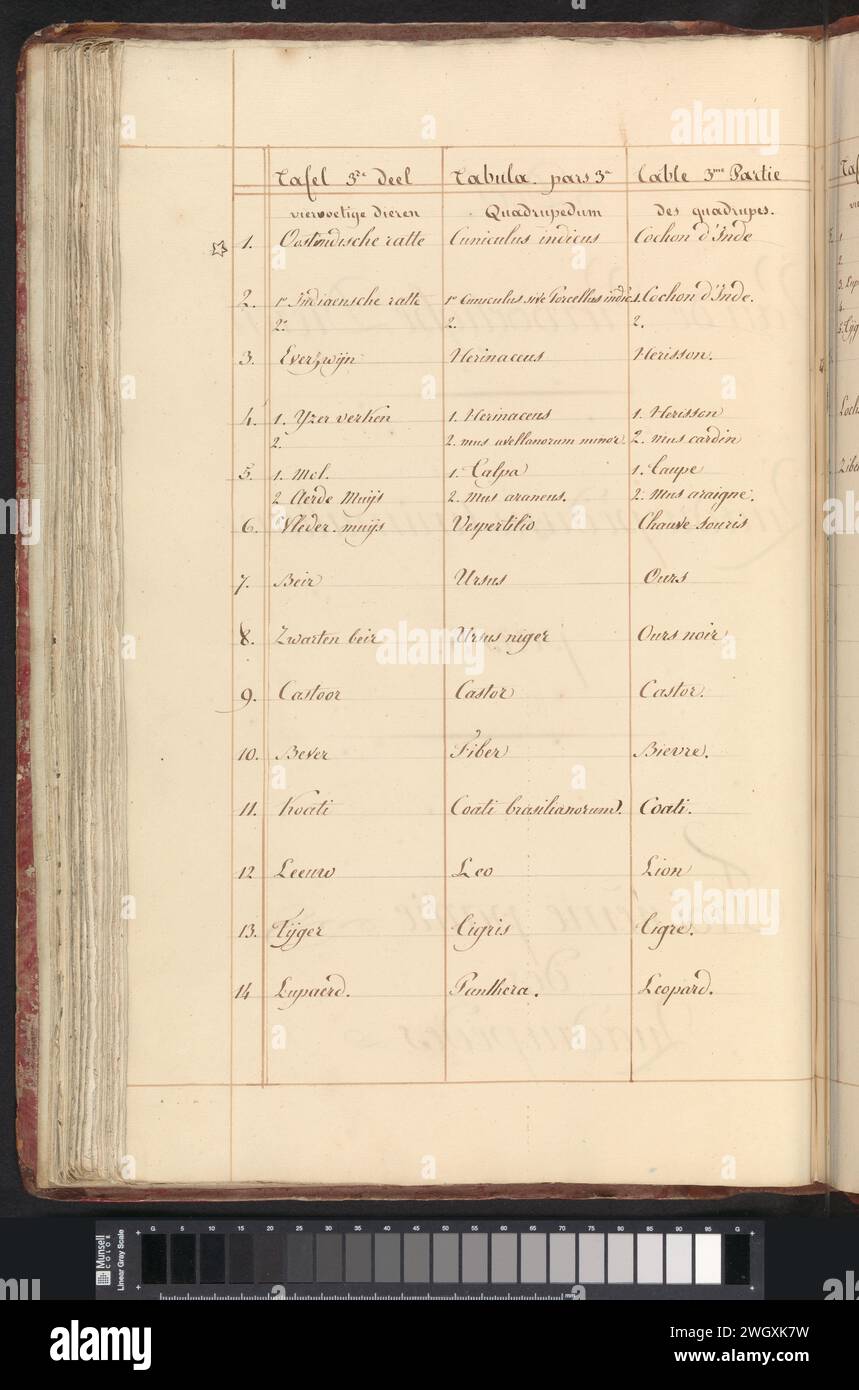 Tafel 3de deel Tabula pars 3a Table 3me Partie
viervoetige dieren Quadrupedum des quadrupes.
1. Oostindische ratte Cuniculus indicus Cochon d'Inde
2. 1º Indiaensche ratte 1º Cuniculus sive Porcellus indic. 1. Cochon d'Inde.
2º 2. 2.
3. Everzwijn Herinaceus Herisson.
4. 1. Yzer verken 1. Herinaceus 1. Herisson
2. 2. mus avellanorum minor 2. mus cardin
5. 1. Mol. 1. Talpa 1. Taupe
2. Aerde Muijs 2. Mus araneus. 2. Mus araigne.
6. Vleder-muijs Vespertilio Chauve souris
7. Beir Ursus Ours
8. Zwarten beir Ursus niger Ours noir
9. Castoor Castor Castor.
10. Bever Fiber Bievre.
11. Koati Coati brasilianorum. Coati.
12 Leeuw Leo Lion
13. Tijger Tigris Tigre.
14 Lupaerd. Panthera. Leopard.
Munsell
COLOR
Linear Gray Scale
G. 5 10 15 20 25 30 35 40 45 50 55 60 65 70 75 80 85 90 95 G
mm
alamy
Image ID: 2WGXK7W
www.alamy.com